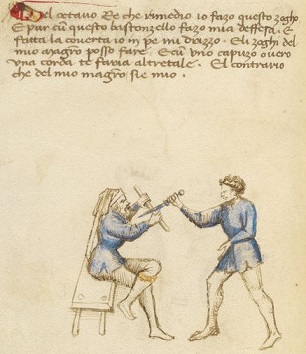 Del octavo Re che rimedio io fazo questo zogho
E pur cum questo bastonzello fazo mia deffesa. E
fatta la coverta io in pe mi drizzo. E li zoghi del
mio magro posso fare. E cum uno capuzo overo
una corda te faria altretale. El contrario
che del mio magro sie mio.